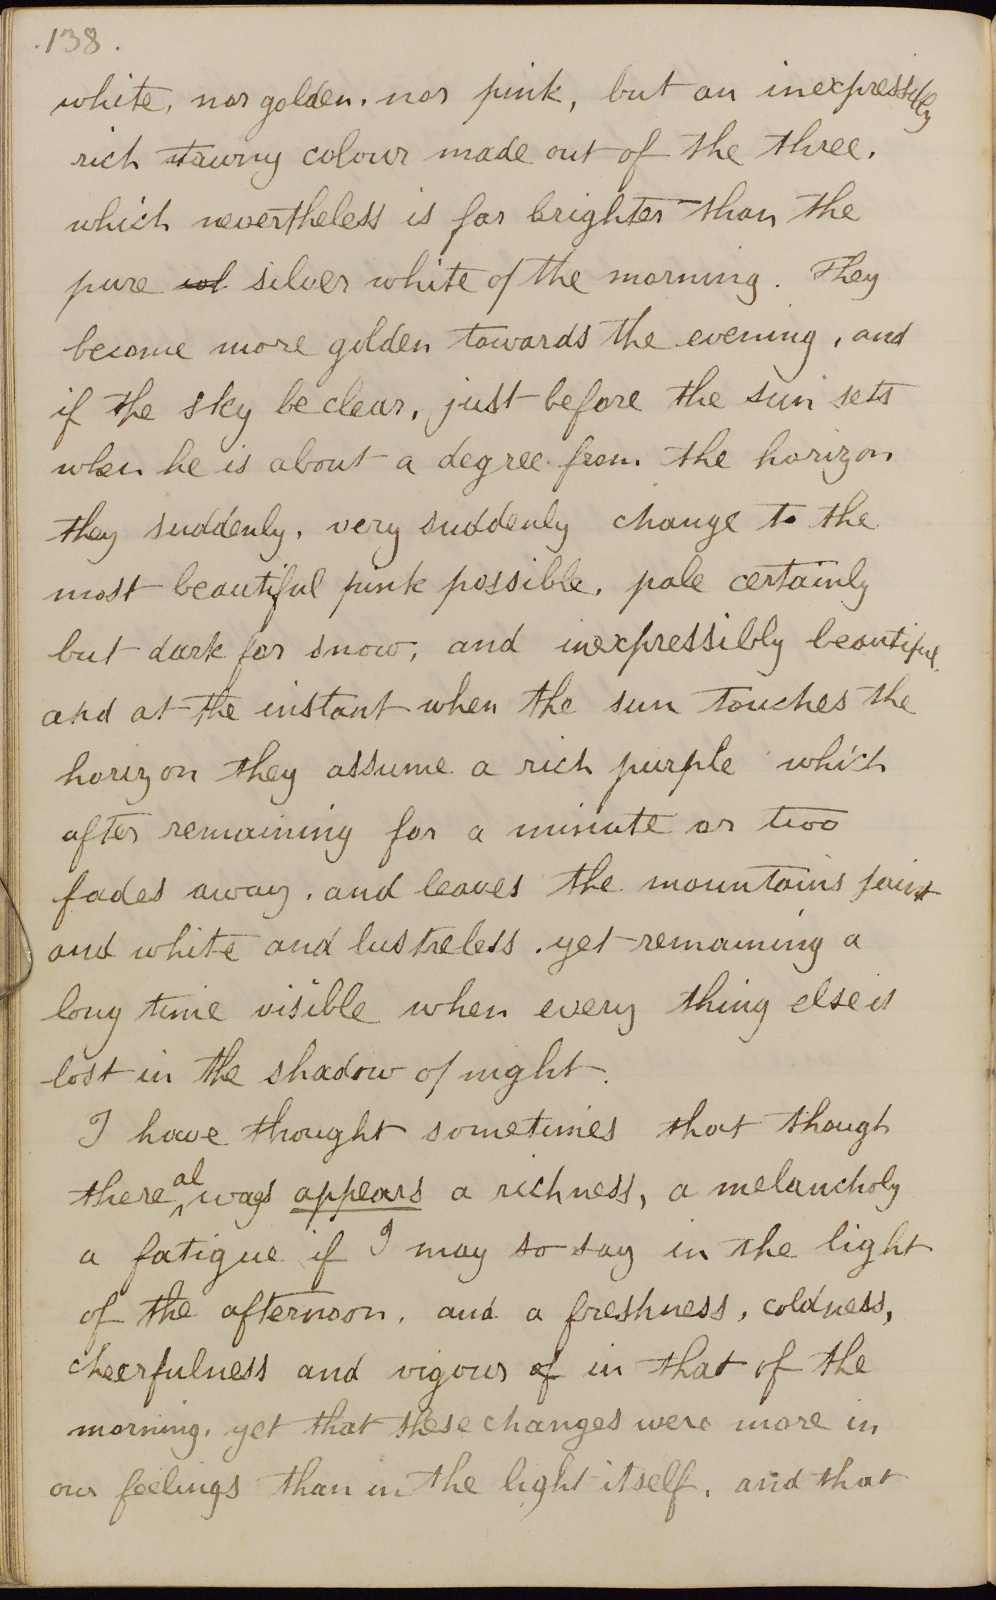 .138.
white, nor golden, nor pink, but an inexpressibly
rich tawny colour made out of the three,
which nevertheless is far brighter than the
pure wh silver white of the morning. They
become more golden towards the evening, and
if the sky be clear, just before the sun sets
when he is about a degree from the horizon
they suddenly, very suddenly change to the
most beautiful pink possible, pale certainly
but dark for snow, and inexpressibly beautiful,
and at the instant when the sun touches the
horizon they assume a rich purple which
after remaining for a minute or two
fades away, and leaves the mountains faint
and white and lustreless, yet remaining a
long time visible when every thing else is
lost in the shadow of night.
I have thought sometimes that though
there always appears a richness, a melancholy
a fatigue if I may so say in the light
of the afternoon, and a freshness, coldness,
cheerfulness and vigour of in that of the
morning, yet that these changes were more in
our feelings than in the light itself, and that